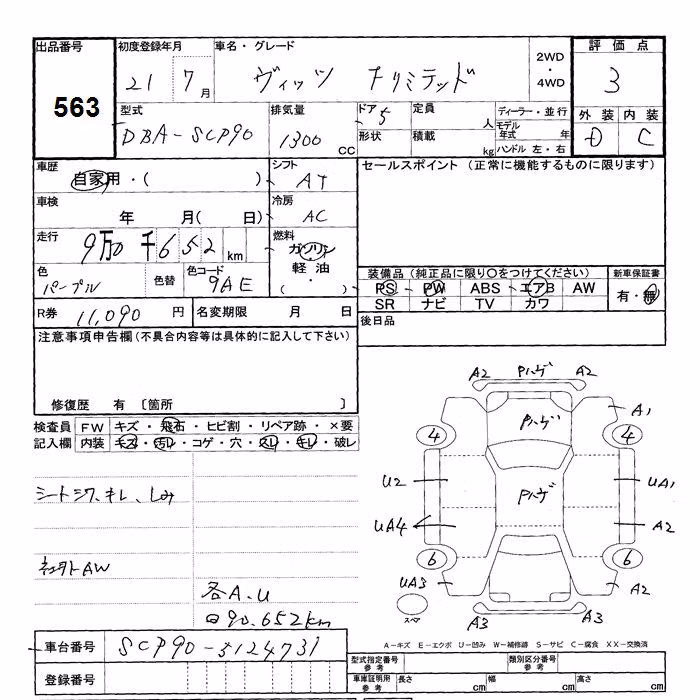 出品番号 初度登録年月 車名・グレード 2WD ・ 4WD 評価点
563 21 7月 ヴィッツ Fリミテッド 3
型式 排気量 ドア 5 定員 人 ディーラー・並行 外装 内装
DBA-SCP90 1300 CC 形状 積載 kg モデル年式 年 D C
ハンドル 左・右
車歴 自家用・( ) シフト AT セールスポイント (正常に機能するものに限ります)
車検 年 月( 日) 冷房 AC
走行 9万0千652km 燃料 ガソリン
軽油
・( )
色 パープル 色替 色コード 9AE 装備品 (純正品に限り○をつけてください) 新車保証書
PS PW ABS エアB AW 有・無
SR ナビ TV カワ
R券 11,090 円 名変期限 月 日 後日品
注意事項申告欄 (不具合内容等は具体的に記入して下さい)
修復歴 有 〔箇所 〕
検査員 FW キズ・飛石・ヒビ割・リペア跡・×要
記入欄 内装 キズ・汚レ・コゲ・穴・スレ・キレ・破レ
シートシワ、キレ、しみ
社外AW
各A.U
90.652km
A2 Pハゲ A2
A1
4 Pハゲ 4
U2 Pハゲ UA1
UA4 A2
6 6
UA3 A2
スペア A3 A3
A-キズ E-エクボ U-凹み W-補修跡 S-サビ C-腐食 XX-交換済
車台番号 SCP90-5124731
登録番号
型式指定番号 参考 類別区分番号 参考
車庫証明用 参考 長さ cm 幅 cm 高さ cm